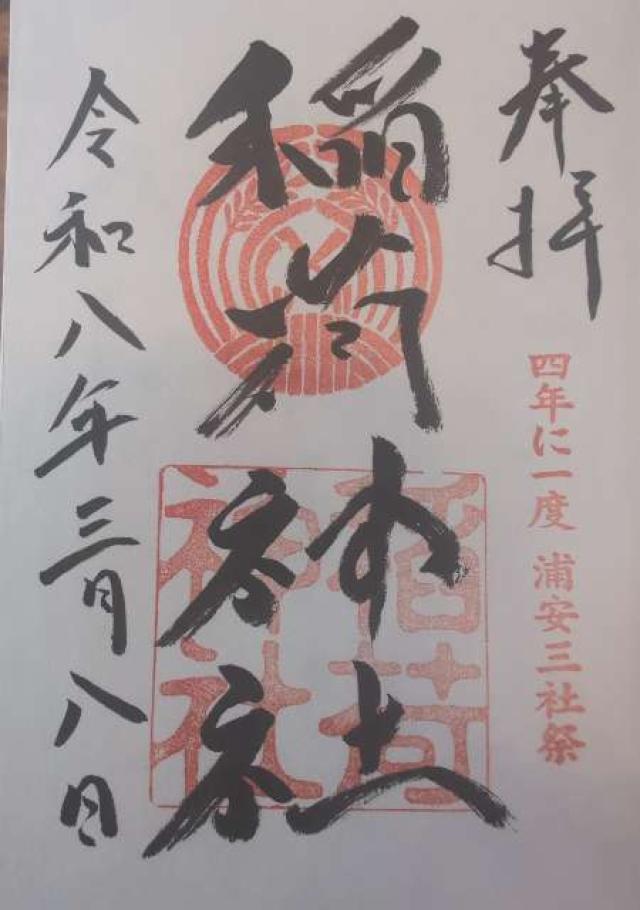 奉拝
四年に一度 浦安三社祭
稲荷神社
稲荷神社
令和八年三月八日